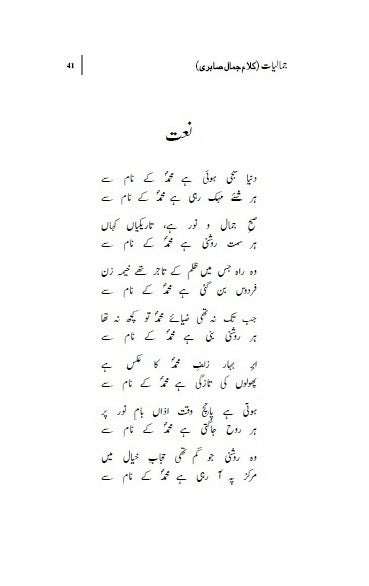 جمالیات (کلام جمال صابری) 41
نعت
دنیا سجی ہوئی ہے محمدؐ کے نام سے
ہر شئے مہک رہی ہے محمدؐ کے نام سے
صبح جمال و نور ہے، تاریکیاں کہاں
ہر سمت روشنی ہے محمدؐ کے نام سے
وہ راہ جس میں ظلم کے تاجر تھے خیمہ زن
فردوس بن گئی ہے محمدؐ کے نام سے
جب تک نہ تھی ضیائے محمدؐ تو کچھ نہ تھا
ہر روشنی بنی ہے محمدؐ کے نام سے
ابرِ بہار زلفِ محمدؐ کا عکس ہے
پھولوں کی تازگی ہے محمدؐ کے نام سے
ہوتی ہے پانچ وقت اذاں بامِ نور پر
ہر روح جاگتی ہے محمدؐ کے نام سے
وہ روشنی جو گم تھی حجابِ خیال میں
مرکز پہ آ رہی ہے محمدؐ کے نام سے